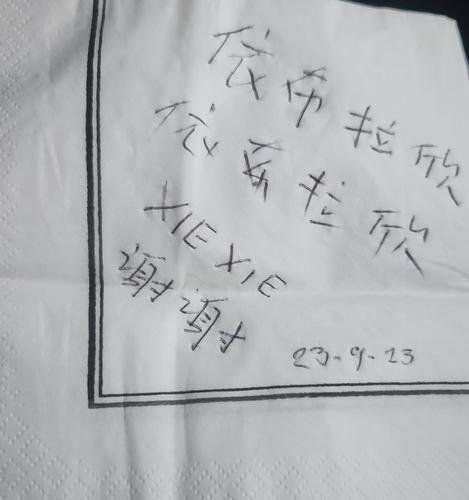 依布拉欣
依布拉欣
XIE XIE
谢谢
23-9-23